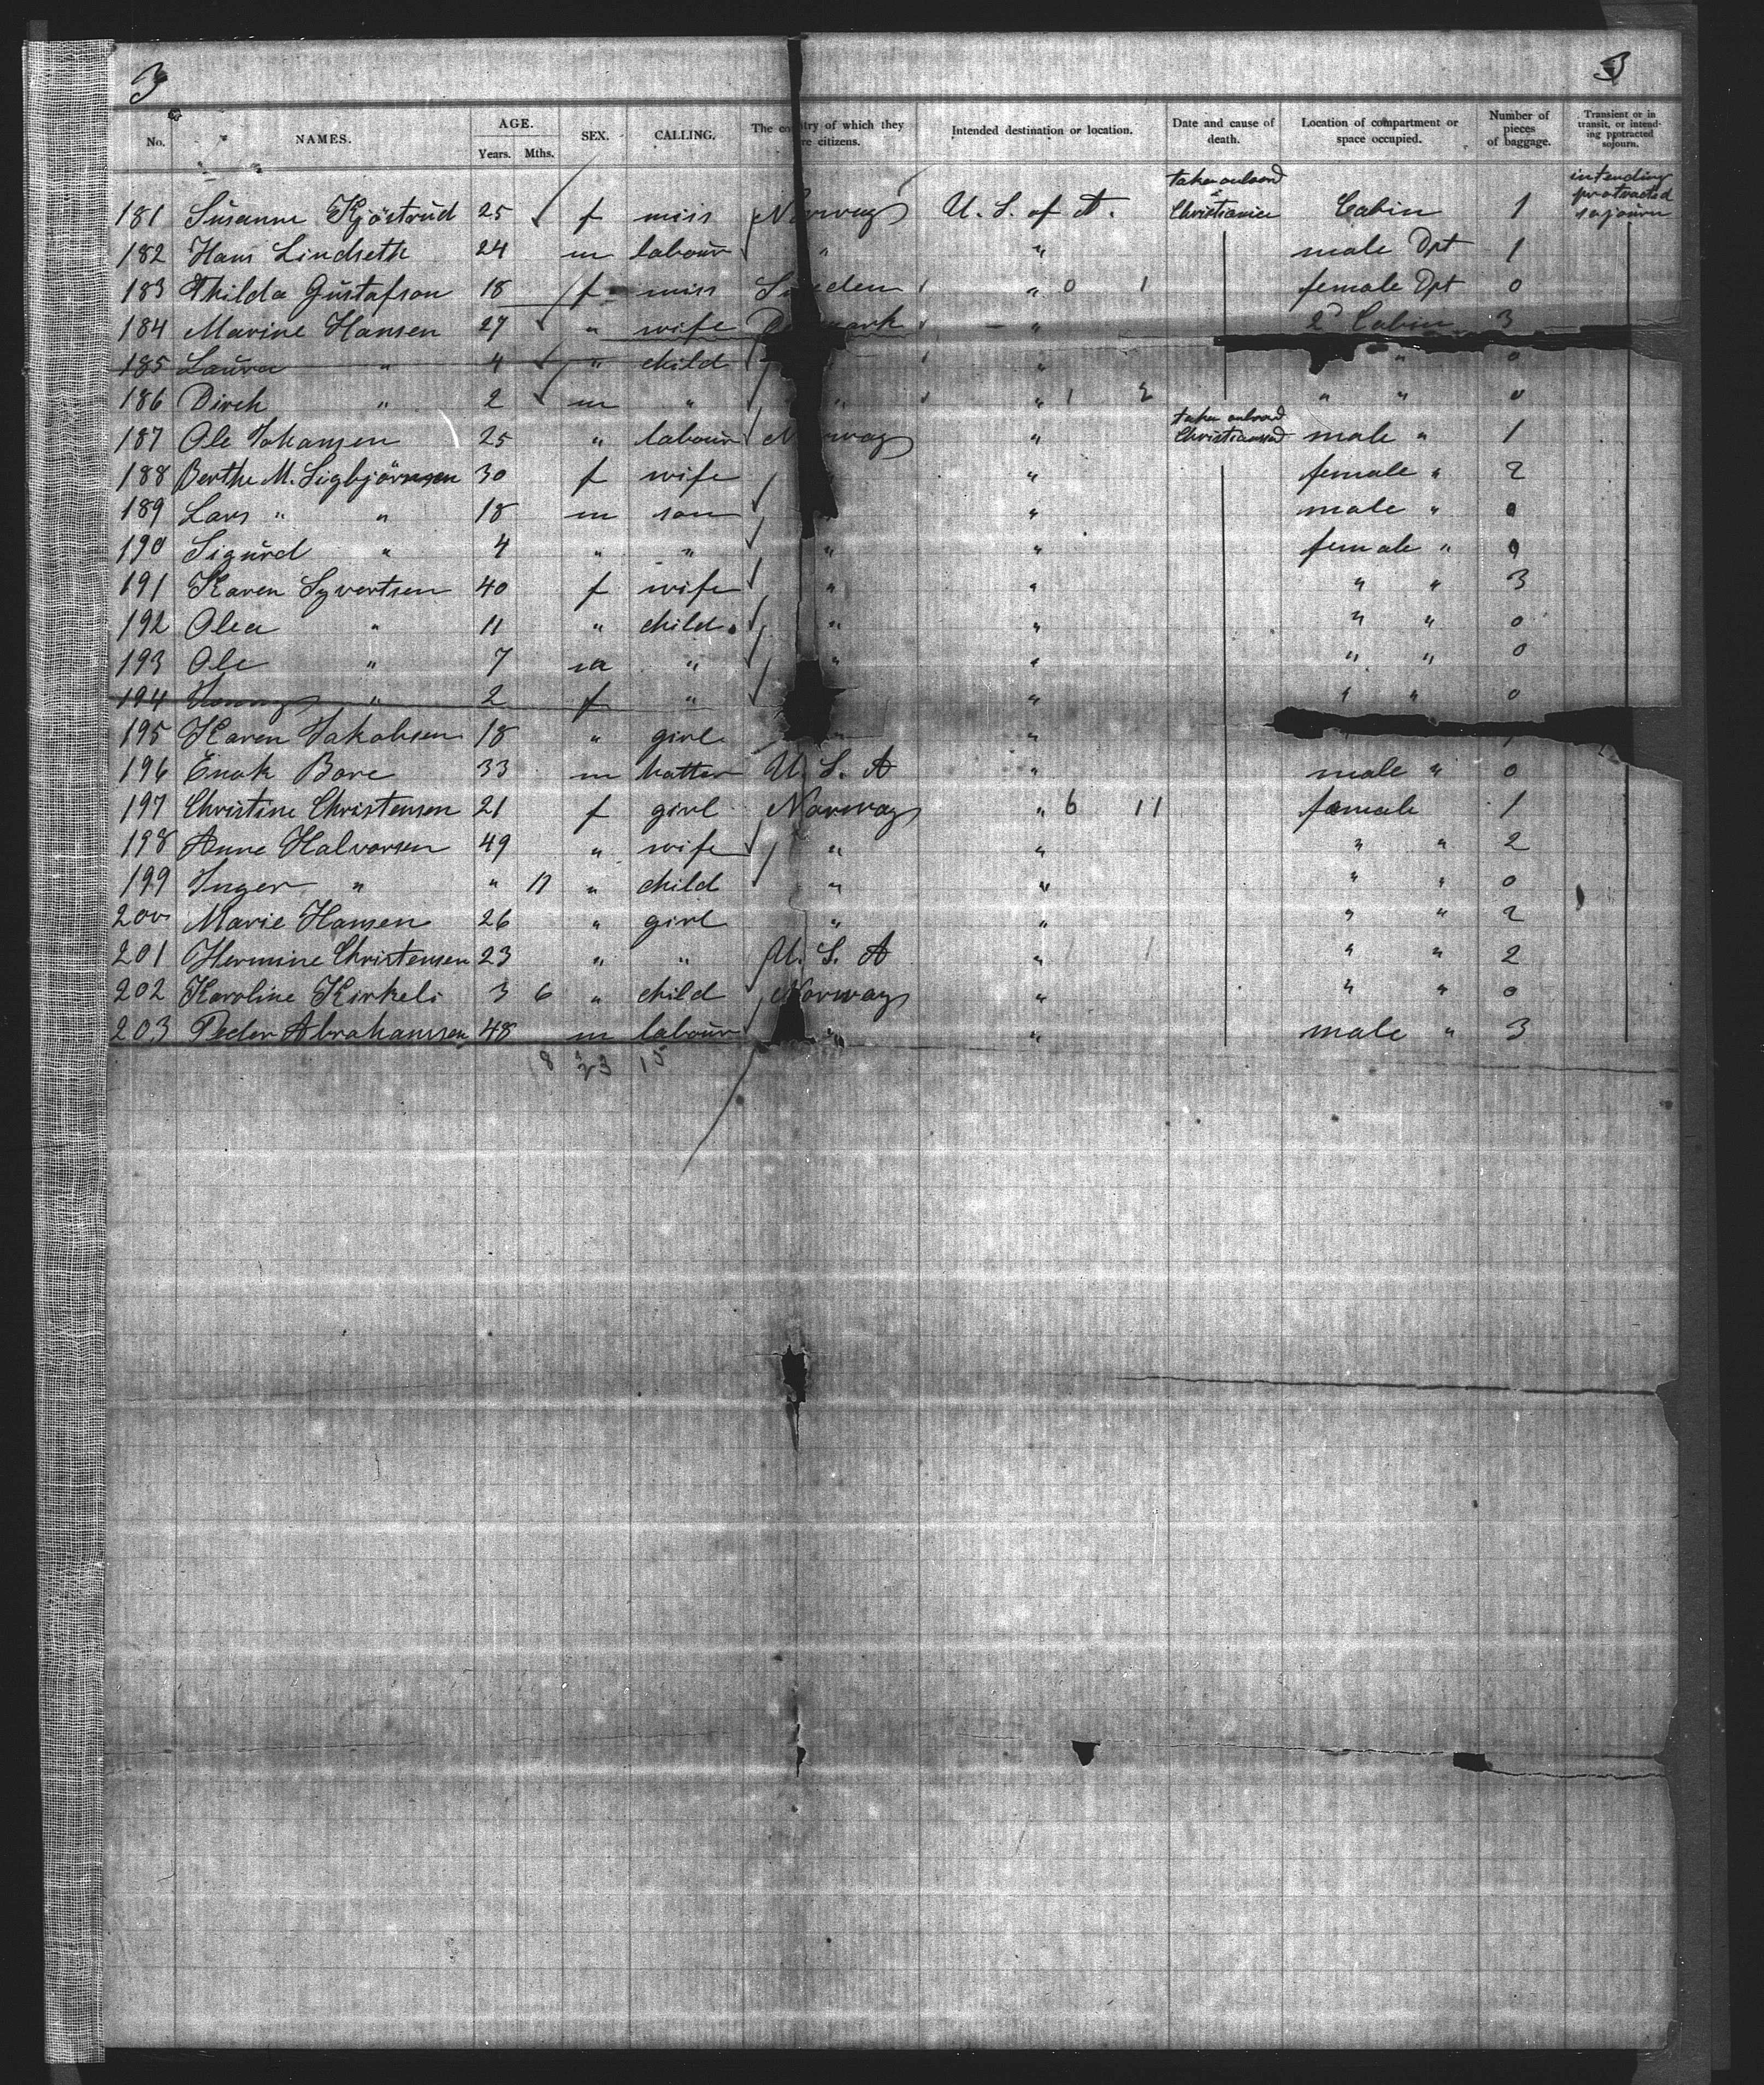 3 3
No. NAMES. AGE. Years. Mths. SEX. CALLING. The country of which they are citizens. Intended destination or location. Date and cause of death. Location of compartment or space occupied. Number of pieces of baggage. Transient or in transit, or intending protracted sojourn.
181 Susanne Kjöstrud 25 f miss Norway U. S. of A. taken onboard Christiania Cabin 1 intending protracted sojourn
182 Hans Lindseth 24 m labour " " male Dpt 1
183 Thilda Gustafson 18 f miss Sweden " 0 1 female Dpt 0
184 Marine Hansen 27 " wife Denmark " 2d Cabin 3
185 Laura " 4 " child " " " 0
186 Dirch " 2 m " " " 1 2 " " 0
187 Ole Johansen 25 " labour Norway " taken onboard Christiansand male " 1
188 Berthe M. Sigbjörnsen 30 f wife " " female " 2
189 Lars " " 18 m son " " male " 0
190 Sigurd " 4 " " " " female " 0
191 Karen Syvertsen 40 f wife " " " " 3
192 Olea " 11 " child " " " " 0
193 Ole " 7 m " " " " " 0
194 " 2 f " " " " 0
195 Karen Jakobsen 18 " girl " "
196 Enok Bore 33 m hatter U. S. A " male " 0
197 Christine Christensen 21 f girl Norway " 6 11 female 1
198 Anne Halvorsen 49 " wife " " " " 2
199 Inger " " 11 " child " " " " 0
200 Marie Hansen 26 " girl " " " " 2
201 Hermine Christensen 23 " " U. S. A " " " 2
202 Karoline Kirkeli 3 6 " child Norway " " " 0
203 Peder Abrahamsen 48 m labour " " male " 3
8 23 15